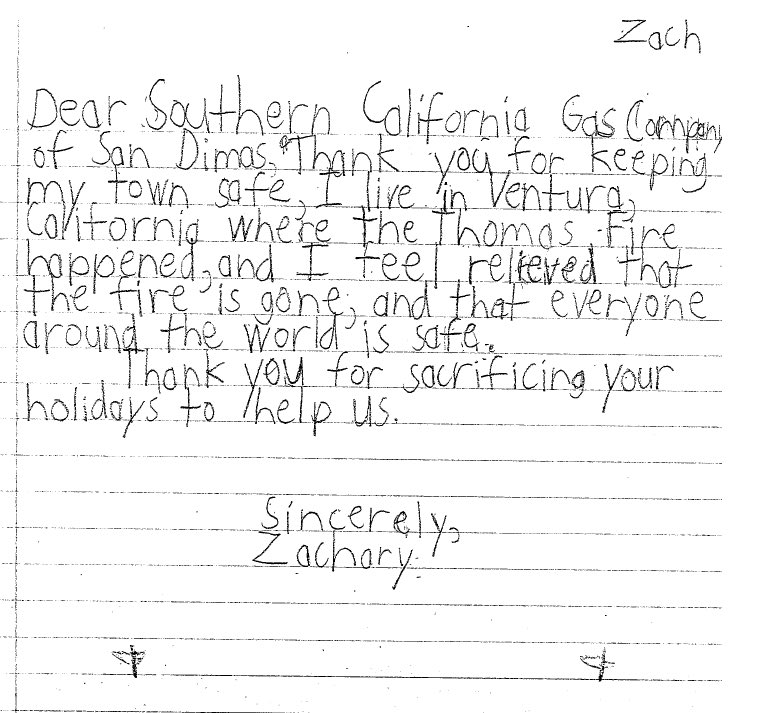 Zach
Dear Southern California Gas Company
of San Dimas, Thank you for keeping
my town safe, I live in Ventura,
California where the Thomas Fire
happened, and I feel relieved that
the fire is gone, and that everyone
around the world is safe.
Thank you for sacrificing your
holidays to help us.
Sincerely,
Zachary